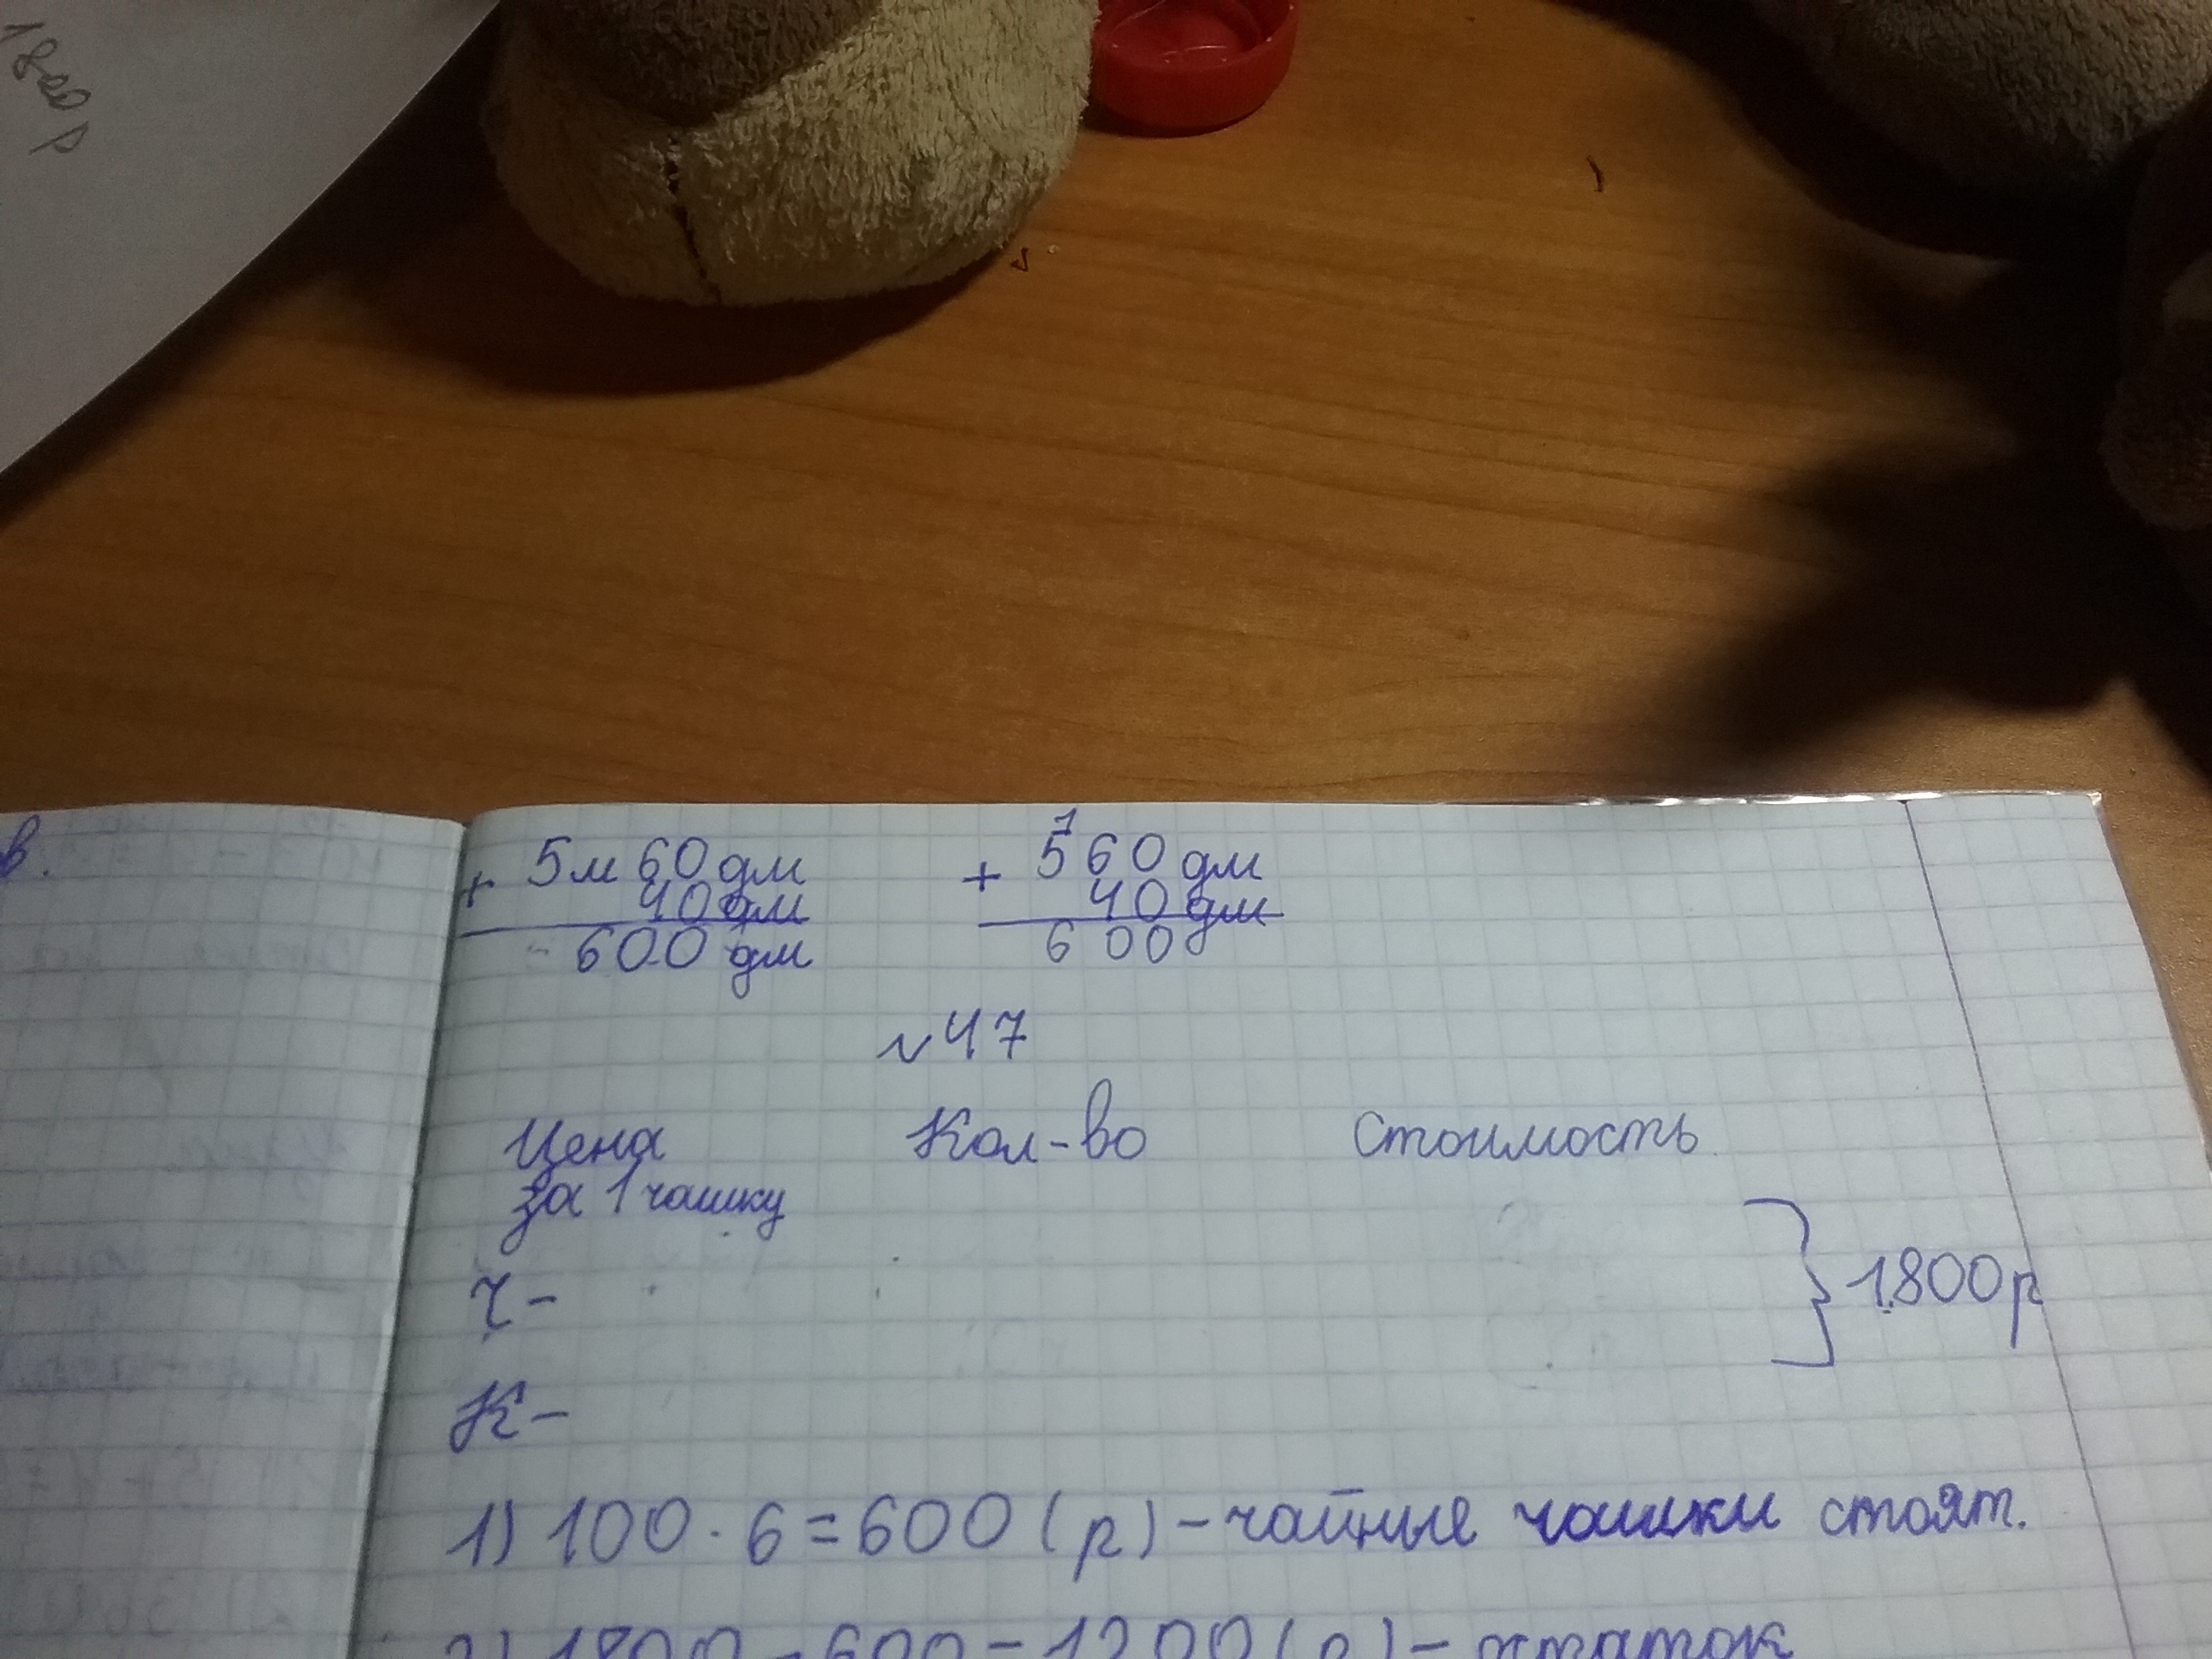 1800р
в.
+ 5м 60 дм
40 дм
600 дм
1
+ 560 дм
40 дм
600
№47
Цена Кол-во Стоимость
за 1 чашку
Ч-
} 1800р
К-
1) 100 · 6 = 600 (р) - чайные чашки стоят.
2) 1800 - 600 = 1200 (р) - остаток